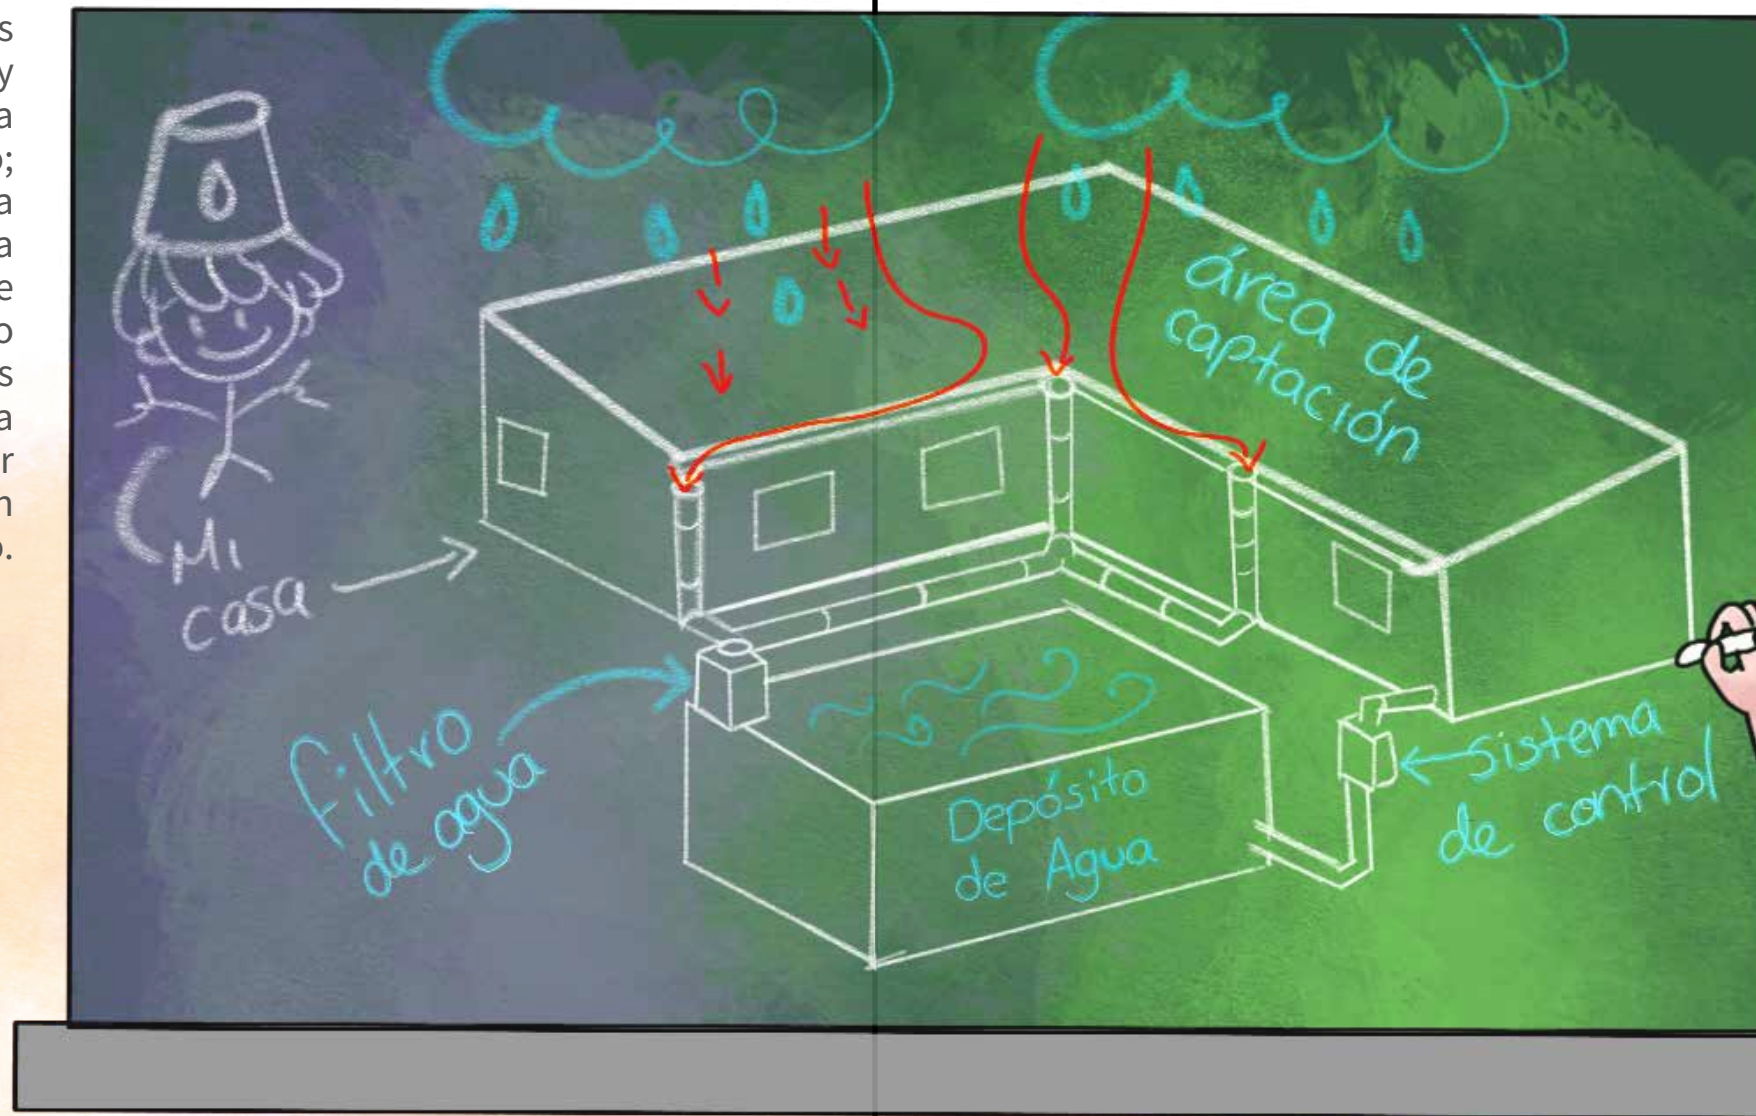 s
y
a
;
a
a
e
o
s
a
r
n
.
área de
captación
Mi
casa
filtro
de agua
Depósito
de Agua
sistema
de control